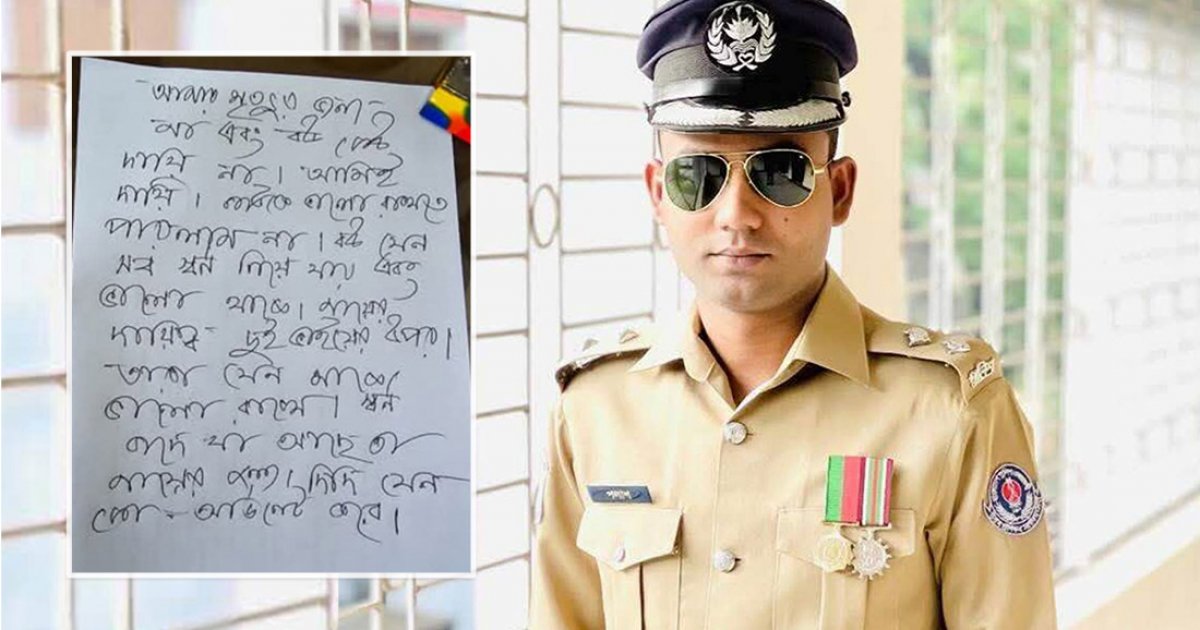 আমার মৃত্যুর জন্য
মা এবং বউ কেউ
দায়ি না। আমিই
দায়ি। কাউকে ভালো রাখতে
পারলাম না। বউ যেন
সব স্বর্ন নিয়ে যায় এবং
ভালো থাকে। মায়ের
দায়িত্ব দুই ভাইয়ের উপর।
তারা যেন মাকে
ভালো রাখে। স্বর্ন
বাদে যা আছে তা
মায়ের জন্য। দিদি যেন
কো-অর্ডিনেট করে।
পলাশ